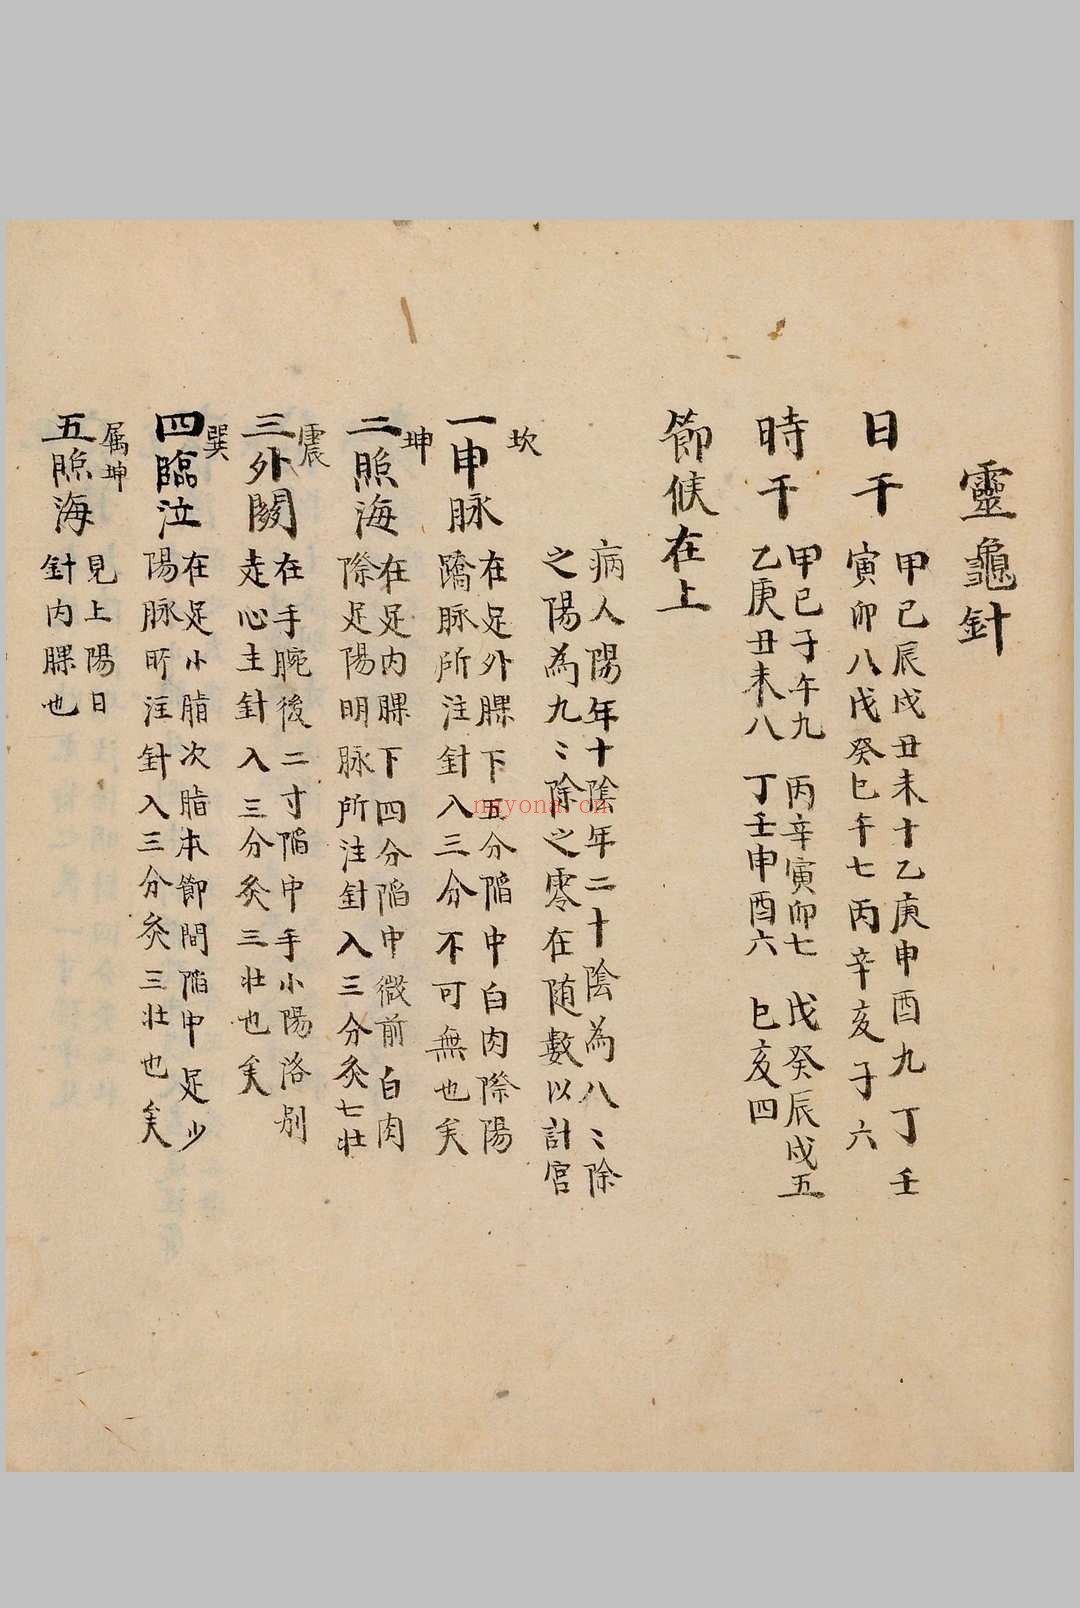 靈龜針
日干
甲己辰戌丑未十乙庚申酉九丁壬
寅卯八戊癸巳午七丙辛亥子六
時干
甲己子午九 丙辛寅卯七 戊癸辰戌五
乙庚丑未八 丁壬申酉六 巳亥四
節候在上
病人陽年十陰年二十陰為八〻除
之陽為九〻除之零在随數以計官
坎
一申脉
在足外腂下五分陷中白肉際陽
蹻脉所注針入三分不可無也矣
坤
二照海
在足内腂下四分陷中微前白肉
際足陽明脉所注針入三分灸七壮
震
三外関
在手腕後二寸陷中手小陽洛别
走心主針入三分灸三壮也矣
巽
四臨泣
在足小脂次脂本節間陷中足少
陽脉所注針入三分灸三壮也矣
属坤
五照海
見上陽日
針内腂也
nayona.cn